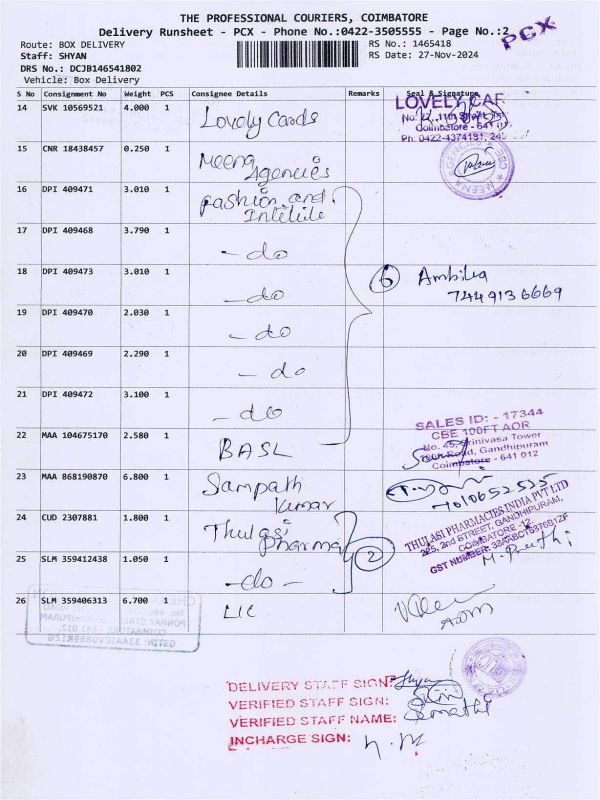 THE PROFESSIONAL COURIERS, COIMBATORE
Delivery Runsheet - PCX - Phone No.:0422-3505555 - Page No.:2
PCX
Route: BOX DELIVERY
RS No.: 1465418
Staff: SHYAN
RS Date: 27-Nov-2024
DRS No.: DCJB146541802
Vehicle: Box Delivery
S No Consignment No Weight PCS Consignee Details Remarks Seal & Signature
14 SVK 10569521 4.000 1 Lovely Cards
LOVELY CAR
Coimbatore - 641 01
Ph: 0422-4374191, 24
15 CNR 18438457 0.250 1 Meena Agencies
MEENA AGENCIES CBE
16 DPI 409471 3.010 1 Fashion and
17 DPI 409468 3.790 1 - do
18 DPI 409473 3.010 1 - do
6 Ambika
7449136669
19 DPI 409470 2.030 1 - do
20 DPI 409469 2.290 1 - do
21 DPI 409472 3.100 1 - do
22 MAA 104675170 2.580 1 BASL
SALES ID: - 17344
CBE 100FT AOR
No. 45, Srinivasa Tower
Road, Gandhipuram
Coimbatore - 641 012
23 MAA 868190870 6.800 1 Sampath Kumar
7010652535
24 CUD 2307881 1.800 1 Thulasi Pharma
2
THULASI PHARMACIES INDIA PVT LTD
225, 2nd STREET, GANDHIPURAM,
COIMBATORE-12.
GST NUMBER:
M. Preethi
25 SLM 359412438 1.050 1 - do -
26 SLM 359406313 6.700 1 LIC
DELIVERY STAFF SIGN: Shyan
VERIFIED STAFF SIGN:
VERIFIED STAFF NAME:
INCHARGE SIGN: